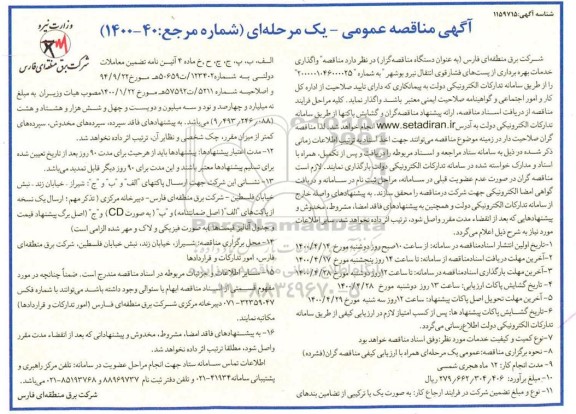 شناسه آگهی: ۱۱۵۹۷۱۵
وزارت نیرو
شرکت برق منطقه‌ای فارس
آگهی مناقصه عمومی – یک مرحله‌ای (شماره مرجع: ۴۰-۱۴۰۰)
شرکت برق منطقه‌ای فارس (به عنوان دستگاه مناقصه‌گزار) در نظر دارد مناقصه واگذاری
خدمات بهره برداری از پست‌های فشارقوی انتقال نیرو بوشهر به شماره
را از طریق سامانه تدارکات الکترونیکی دولت به پیمانکاری که دارای تایید صلاحیت از اداره کل
کار و امور اجتماعی و گواهینامه صلاحیت ایمنی معتبر باشند واگذار نماید. کلیه مراحل فرایند
مناقصه از دریافت اسناد مناقصه، ارائه پیشنهاد مناقصه‌گران و گشایش پاکتها از طریق سامانه
تدارکات الکترونیکی دولت به آدرس www.setadiran.ir انجام خواهد شد. لذا مناقصه
گران صلاحیت دار در زمینه موضوع مناقصه می‌توانند جهت اخذ اسناد
ذکر شده در ذیل به سامانه ستاد مراجعه و اسناد مربوطه را دریافت و پس از تکمیل، همراه با
اسناد و مدارک خواسته شده در سامانه تدارکات الکترونیکی دولت بارگذاری نمایند. لازم است
مناقصه گران در صورت عدم عضویت قبلی در سامانه، مراحل ثبت نام در سامانه و دریافت
گواهی امضا الکترونیکی جهت شرکت در مناقصه را محقق سازند. به پیشنهادهای واصله خارج
از سامانه تدارکات الکترونیکی دولت و همچنین به پیشنهادهای فاقد امضا، مشروط، مخدوش و
پیشنهادهایی که بعد از انقضاء مدت مقرر واصل شود، ترتیب اثر داده نخواهد شد. سایر اطلاعات
مورد نیاز به شرح ذیل اعلام می‌گردد.
۱- تاریخ اولین انتشار اسناد مناقصه در سامانه: از ساعت ۱۰ صبح روز دوشنبه مورخ ۱۴۰۰/۴/۱۴
۲- آخرین مهلت دریافت اسناد مناقصه از سامانه: تا ساعت ۱۲ روز پنجشنبه مورخ ۱۴۰۰/۴/۱۷
۳- آخرین مهلت بارگذاری اسناد مناقصه در سامانه: تا ساعت ۱۲ روز دوشنبه مورخ ۱۴۰۰/۴/۲۸
۴- تاریخ گشایش پاکات ارزیابی: ساعت ۱۳ روز دوشنبه مورخ ۱۴۰۰/۴/۲۸
۵- آخرین مهلت تحویل اصل پاکات پیشنهاد: تا ساعت ۱۲ روز سه شنبه مورخ ۱۴۰۰/۴/۲۹
۶- تاریخ گشایش پاکات پیشنهاد ها: پس از کسب امتیاز لازم در ارزیابی کیفی از طریق سامانه
تدارکات الکترونیکی دولت اطلاع‌رسانی می‌گردد.
۷- نوع کمیت و کیفیت خدمات مورد نظر: طبق اسناد مناقصه خواهد بود
۸- نحوه برگزاری مناقصه: عمومی یک مرحله‌ای همراه با ارزیابی کیفی مناقصه گران (فشرده)
۹- مدت انجام کار: ۱۲ ماه هجری شمسی
۱۰- مبلغ برآورد: ۲۷۹٫۶۶۲٫۳۰۴٫۴۰۶ ریال
۱۱- نوع و مبلغ تضمین شرکت در فرایند ارجاع کار: به صورت یک یا ترکیبی از تضامین بندهای
الف، ب، پ، ج، چ، ح، خ ماده ۴ آئین نامه تضمین معاملات
دولتی به شماره ۱۲۳۴۰۲/ت۵۰۶۵۹ه مورخ ۹۴/۹/۲۲
و اصلاحیه شماره ۵۲۱۱/ت۵۷۵۹۲ه مورخ ۱۴۰۰/۱/۲۲ مصوب هیات وزیران به مبلغ
نه میلیارد و چهارصد و نود و سه میلیون و دویست و چهل و شش هزار و هشتاد و هشت
(۹٫۴۹۳٫۲۴۶٫۰۸۸) ریال می‌باشد. به پیشنهادهای فاقد سپرده، سپرده‌های مخدوش، سپرده‌های
کمتر از میزان مقرر، چک شخصی و نظایر آن، ترتیب اثر داده نخواهد شد.
۱۲- مدت اعتبار پیشنهادها: پیشنهادها باید از هر حیث برای مدت ۹۰ روز بعد از تاریخ تعیین شده
برای تسلیم پیشنهادها معتبر باشند و این مدت برای ۹۰ روز دیگر قابل تمدید می‌باشد.
۱۳- نشانی این شرکت جهت ارسال پاکتهای "الف" و "ب" و "ج": شیراز - خیابان زند - نبش
خیابان فلسطین - شرکت برق منطقه‌ای فارس - دبیرخانه مرکزی (تذکر مهم: ارسال یک نسخه
از پاکت‌های "الف" (اصل ضمانتنامه) و "ب" (به صورت CD) و "ج" (اصل برگ پیشنهاد قیمت
و جدول آنالیز قیمت‌ها) به صورت فیزیکی و لاک و مهر شده الزامی است)
۱۴- محل برگزاری مناقصه: شیراز، خیابان زند، نبش خیابان فلسطین، شرکت برق منطقه‌ای
فارس، امور تدارکات و قراردادها
۱۵- سایر اطلاعات و جزئیات مربوطه در اسناد مناقصه مندرج است. ضمناً چنانچه در مورد
مفهوم قسمتی از اسناد مناقصه ابهام یا سئوالی وجود داشته باشد می‌توانند با شماره فکس
۰۷۱-۳۲۳۵۹۰۴۷ دبیرخانه مرکزی شرکت برق منطقه‌ای فارس (امور تدارکات و قراردادها)
مکاتبه نمایند.
۱۶- به پیشنهادهای فاقد امضا، مشروط، مخدوش و پیشنهاداتی که بعد از انقضاء مدت مقرر
واصل شود، مطلقا ترتیب اثر داده نخواهد شد.
اطلاعات تماس سامانه ستاد جهت انجام مراحل عضویت در سامانه: تلفن مرکز راهبری و
پشتیبانی سامانه ۴۱۹۳۴-۰۲۱ و تلفن ثبت نام ۸۸۹۶۹۷۳۷ و ۸۵۱۹۳۷۶۸-۰۲۱ می‌باشد.
شرکت برق منطقه‌ای فارس